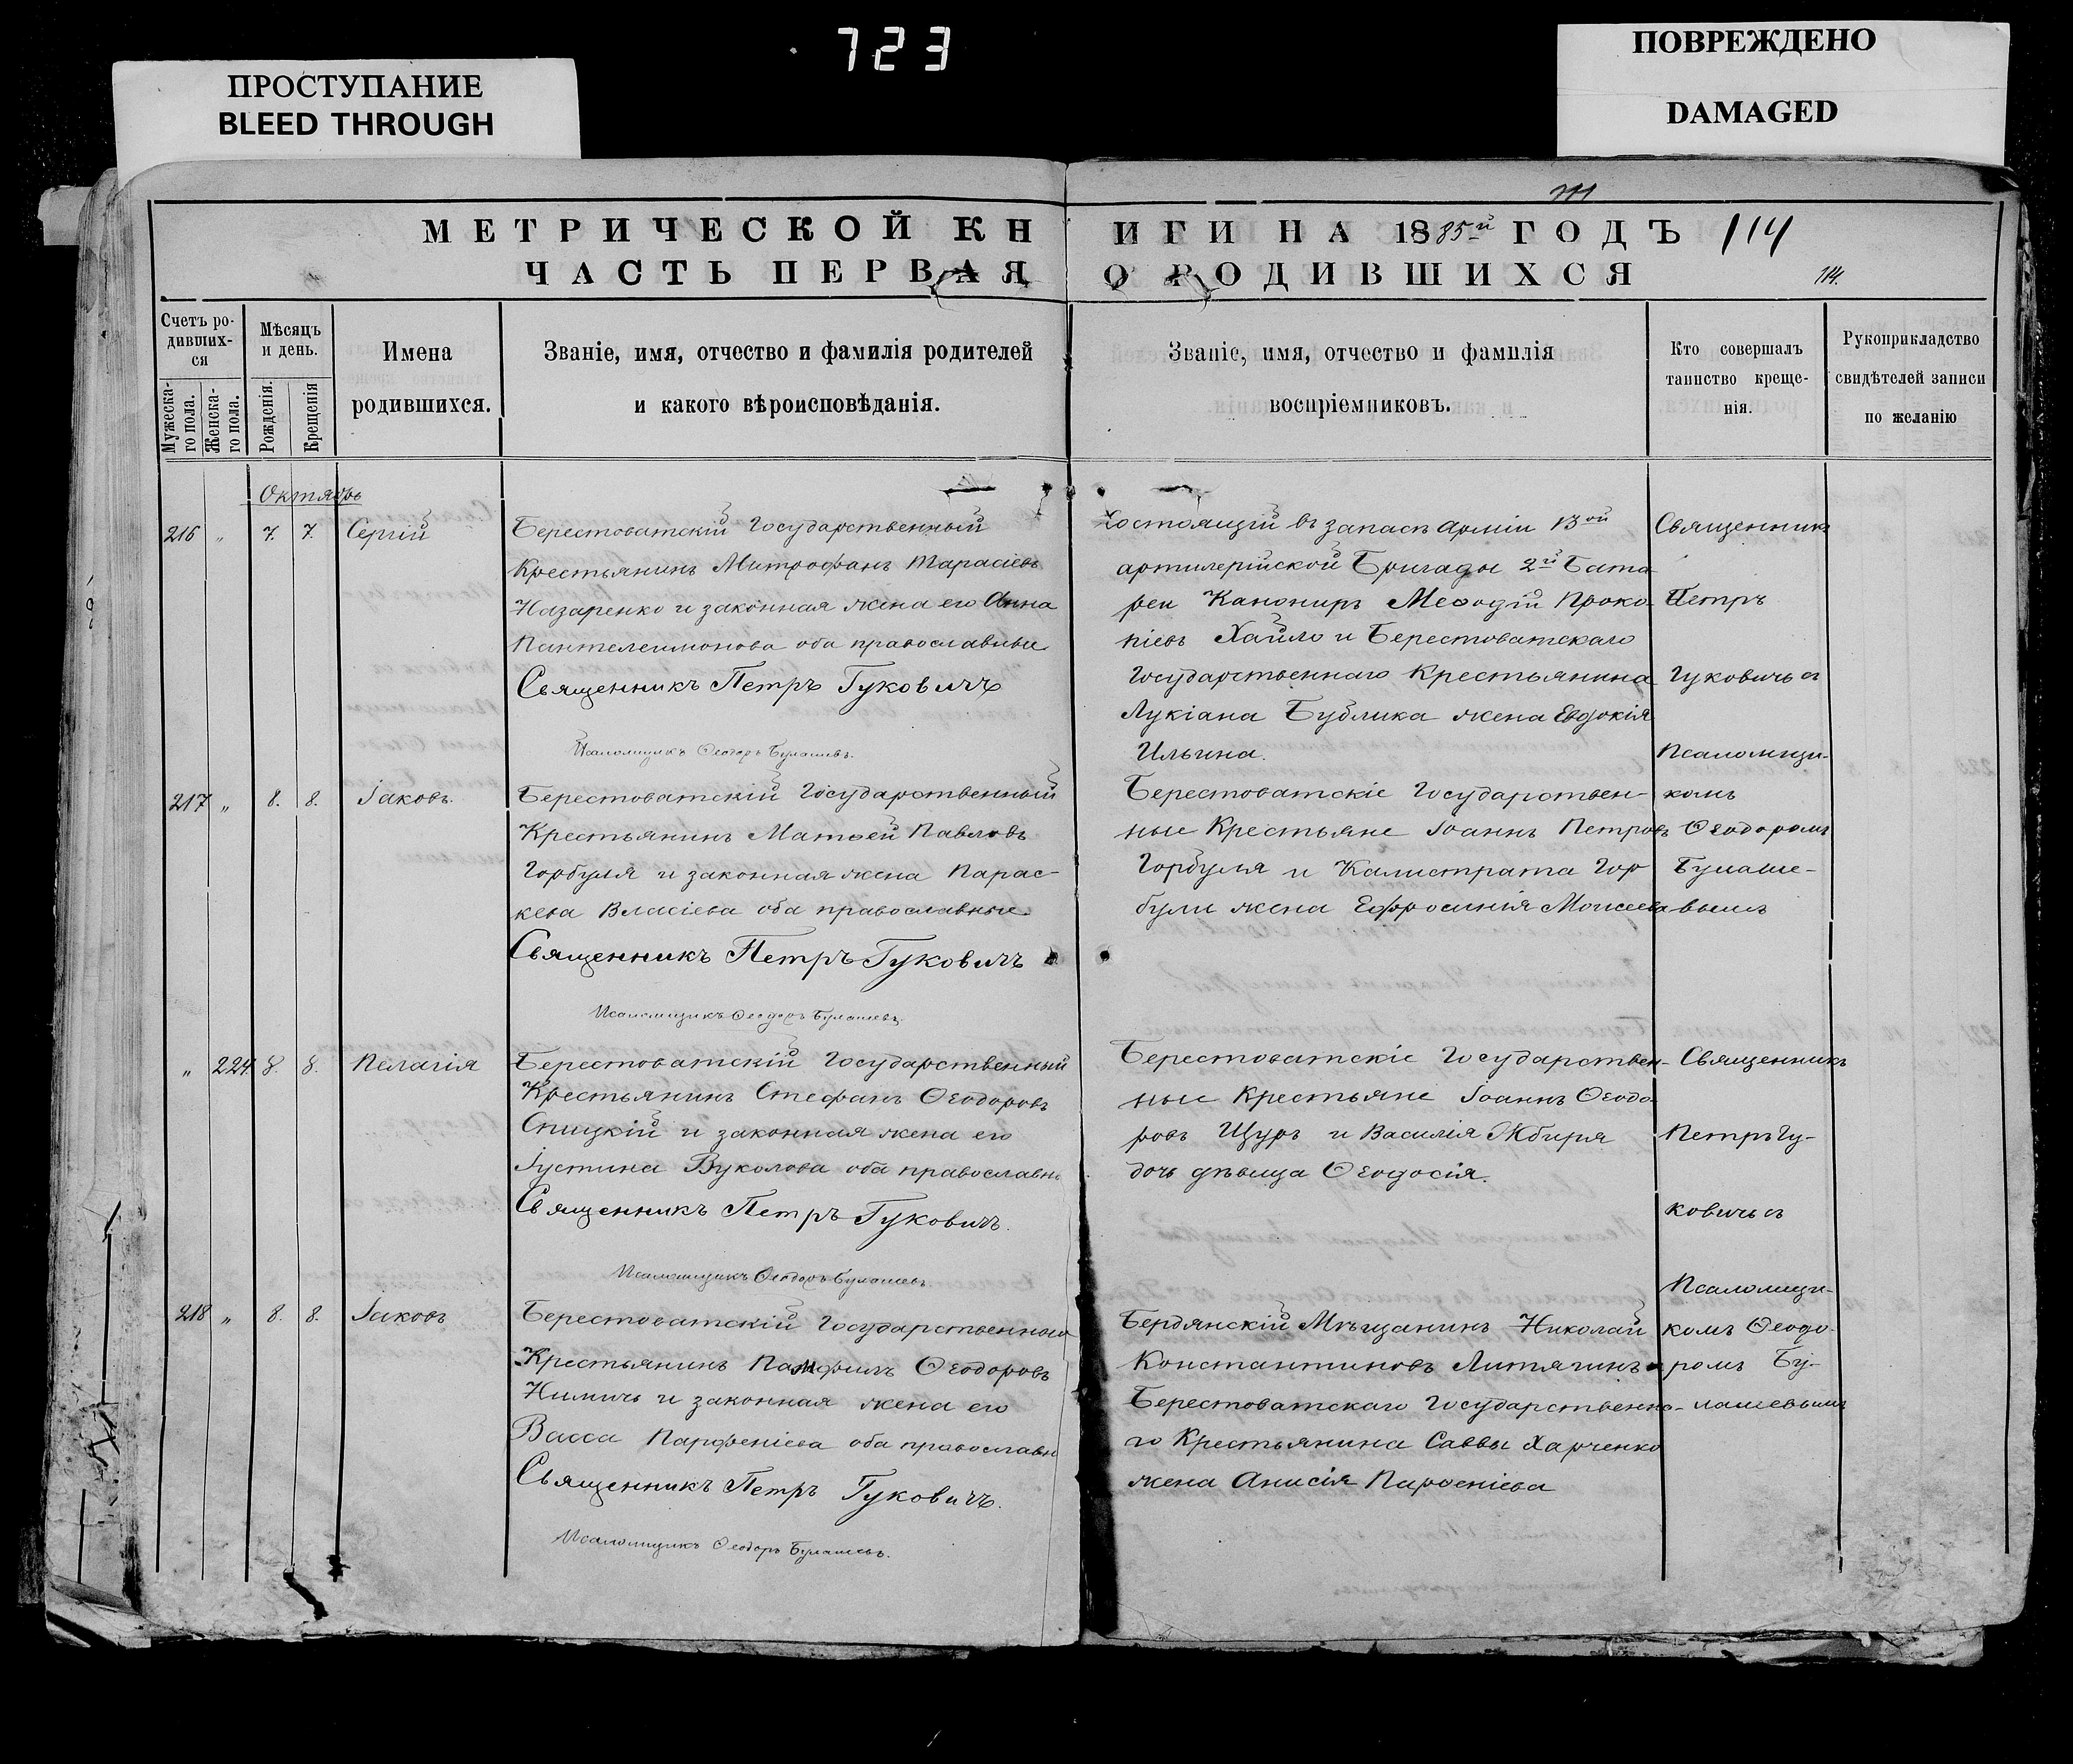 723
ПРОСТУПАНИЕ
BLEED THROUGH
ПОВРЕЖДЕНО
DAMAGED
МЕТРИЧЕСКОЙ КНИГИ НА 1885й ГОДЪ 114
ЧАСТЬ ПЕРВАЯ О РОДИВШИХСЯ
114.
Счетъ ро-
дивших-
ся
Мужеска-
го пола.
Женска-
го пола.
Мѣсяцъ
и день.
Рожденія.
Крещенія
Имена
родившихся.
Званіе, имя, отчество и фамилія родителей
и какого вѣроисповѣданія.
Званіе, имя, отчество и фамилія
воспріемниковъ.
Кто совершалъ
таинство креще-
нія.
Рукоприкладство
свидѣтелей записи
по желанію
Октябрь
216 " 7. 7. Сергій
Берестоватскій Государственный
Крестьянинъ Митрофанъ Тарасіевъ
Назаренко и законная жена его Анна
Пантелеимонова оба православные
Священникъ Петръ Гуковичъ
Псаломщикъ Ѳеодоръ Булашевъ.
Состоящій въ запасѣ арміи 13ой
артилерійской Бригады 2й Бата
реи Канониръ Меѳодій Проко-
піевъ Хайло и Берестоватскаго
Государственнаго Крестьянина
Лукіана Бублика жена Евдокія
Ильина.
Священникъ
Петръ
Гуковичь съ
Псаломщи-
комъ
Ѳеодоромъ
Булаше-
вымъ
217 " 8. 8. Іаковъ.
Берестоватскій Государственный
Крестьянинъ Матѳей Павловъ
Горбуля и законная жена Парас-
кева Власіева оба православные.
Священникъ Петръ Гуковичъ
Псаломщикъ Ѳеодоръ Булашевъ.
Берестоватскіе Государствен-
ные Крестьяне Іоаннъ Петровъ
Горбуля и Калистрата Гор
були жена Ефросинія Моисеева
" 224 8. 8. Пелагія
Берестоватскій Государственный
Крестьянинъ Стефанъ Ѳеодоровъ
Спицкій и законная жена его
Іустина Вуколова оба православн
Священникъ Петръ Гуковичъ.
Псаломщикъ Ѳеодоръ Булашевъ
Берестоватскіе Государствен-
ные Крестьяне Іоаннъ Ѳеодо
ровъ Щуръ и Василія Жбиря
дочь дѣвица Ѳеодосія.
Священникъ
Петръ Гу-
ковичь съ
Псаломщи-
комъ Ѳеодо-
ромъ Бу-
лашевымъ
218 " 8. 8. Іаковъ
Берестоватскій Государственный
Крестьянинъ Памфилъ Ѳеодоровъ
Нимичь и законная жена его
Васса Парфеніева оба православн
Священникъ Петръ Гуковичъ.
Псаломщикъ Ѳеодоръ Булашевъ.
Бердянскій Мѣщанинъ Николай
Константиновъ Литягинъ и
Берестоватскаго Государственна-
го Крестьянина Саввы Харченко
жена Анисія Парѳеніева